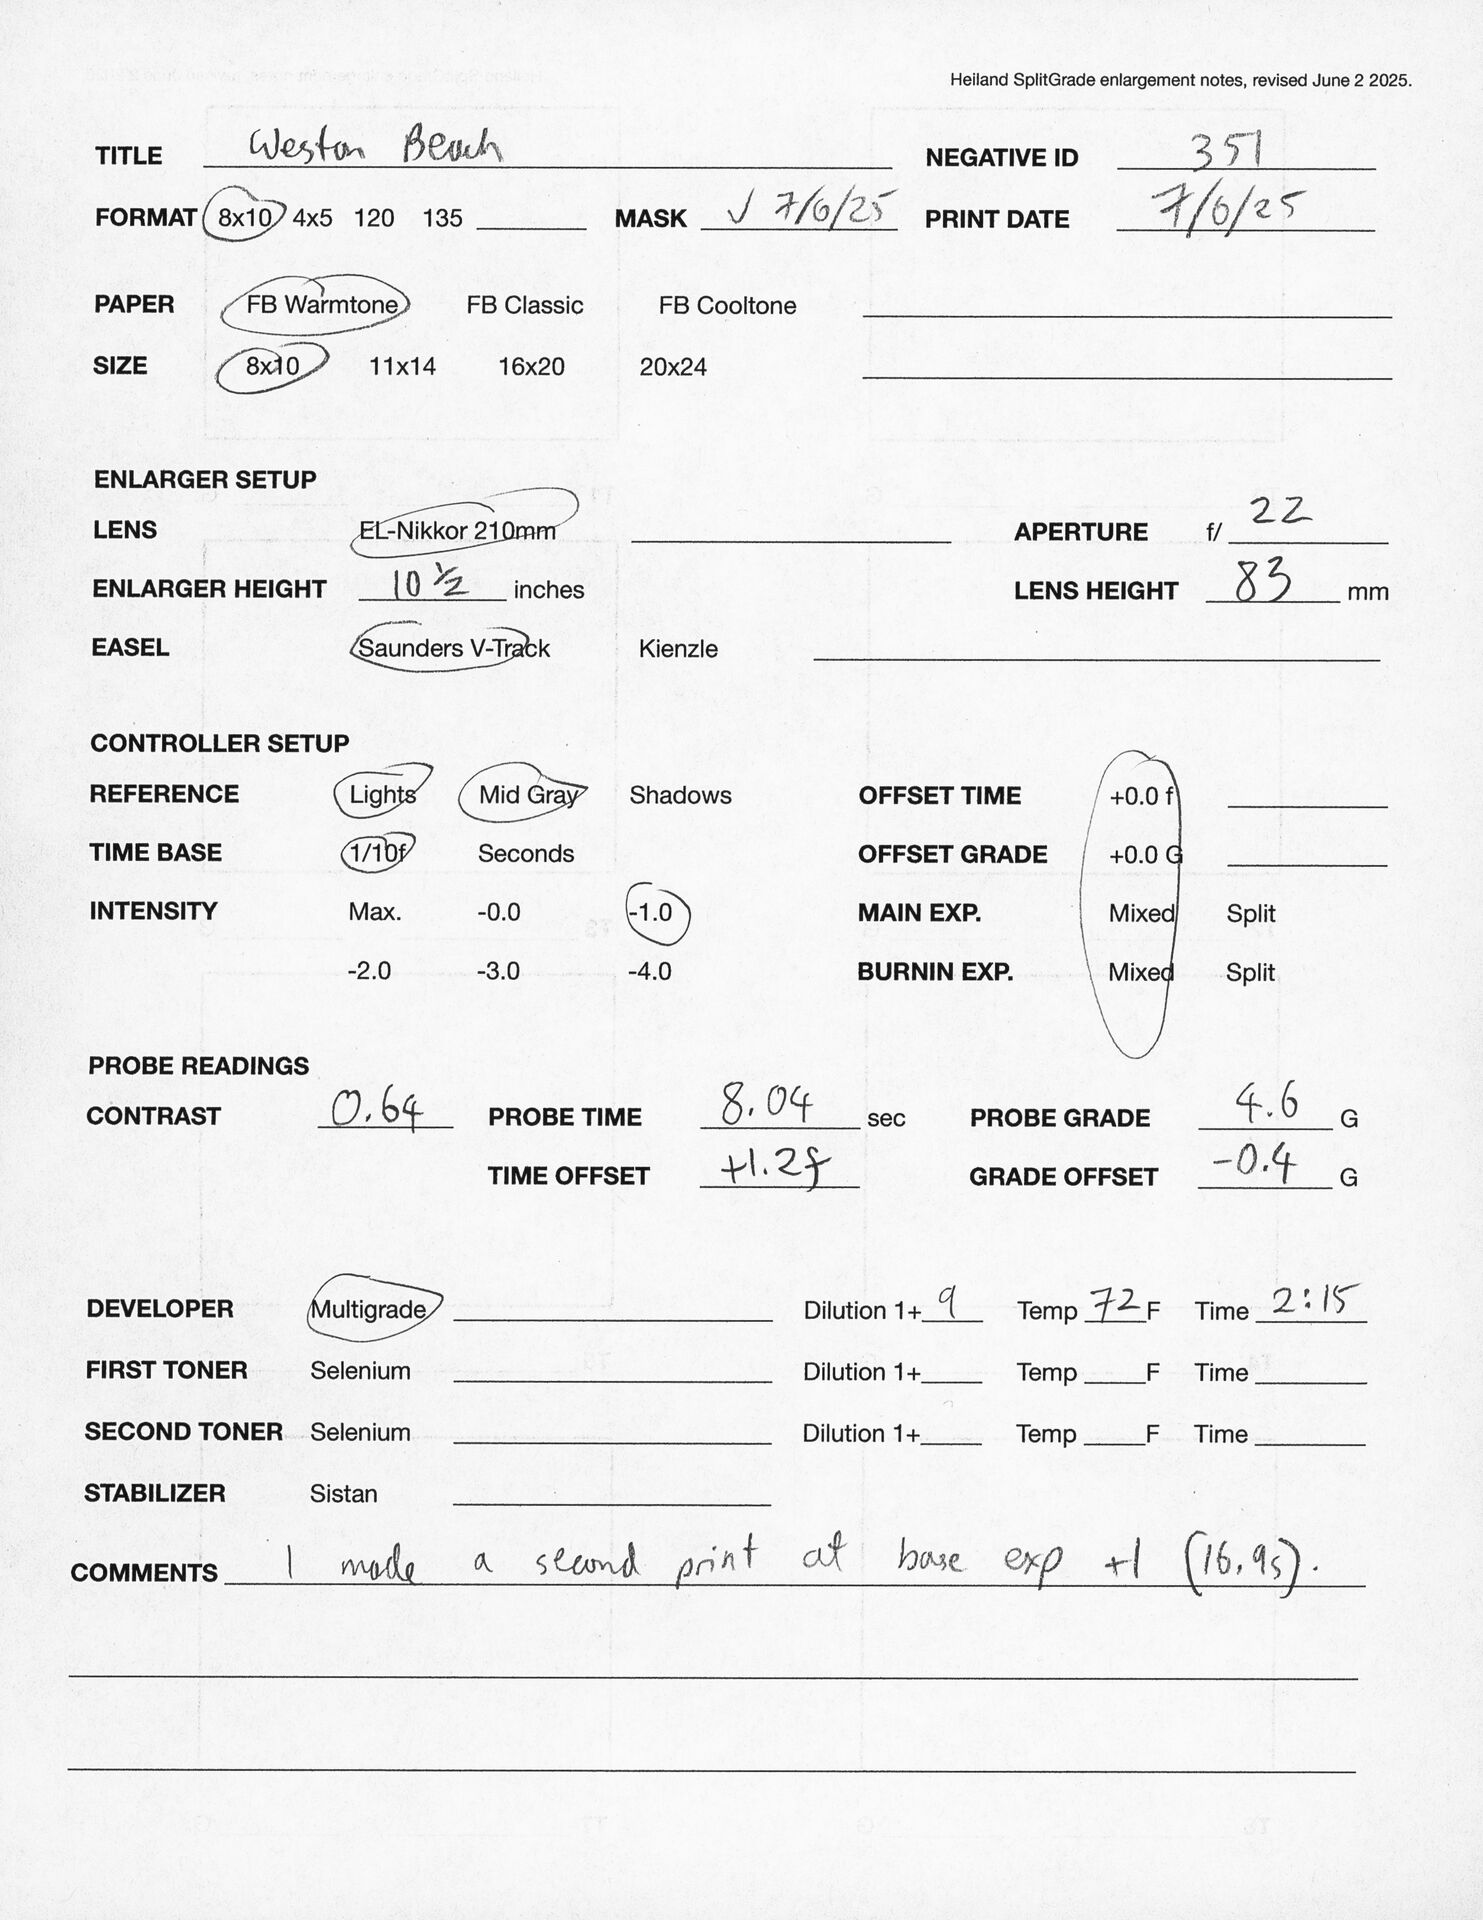 Heiland SplitGrade enlargement notes, revised June 2 2025.
TITLE Weston Beach NEGATIVE ID 351
FORMAT 8x10 4x5 120 135 MASK ✓ 7/6/25 PRINT DATE 7/6/25
PAPER FB Warmtone FB Classic FB Cooltone
SIZE 8x10 11x14 16x20 20x24
ENLARGER SETUP
LENS EL-Nikkor 210mm APERTURE f/ 22
ENLARGER HEIGHT 10 1/2 inches LENS HEIGHT 83 mm
EASEL Saunders V-Track Kienzle
CONTROLLER SETUP
REFERENCE Lights Mid Gray Shadows OFFSET TIME +0.0 f
TIME BASE 1/10f Seconds OFFSET GRADE +0.0 G
INTENSITY Max. -0.0 -1.0 MAIN EXP. Mixed Split
-2.0 -3.0 -4.0 BURNIN EXP. Mixed Split
PROBE READINGS
CONTRAST 0.64 PROBE TIME 8.04 sec PROBE GRADE 4.6 G
TIME OFFSET +1.2f GRADE OFFSET -0.4 G
DEVELOPER Multigrade Dilution 1+ 9 Temp 72 F Time 2:15
FIRST TONER Selenium Dilution 1+ Temp F Time
SECOND TONER Selenium Dilution 1+ Temp F Time
STABILIZER Sistan
COMMENTS I made a second print at base exp +1 (16.9s).